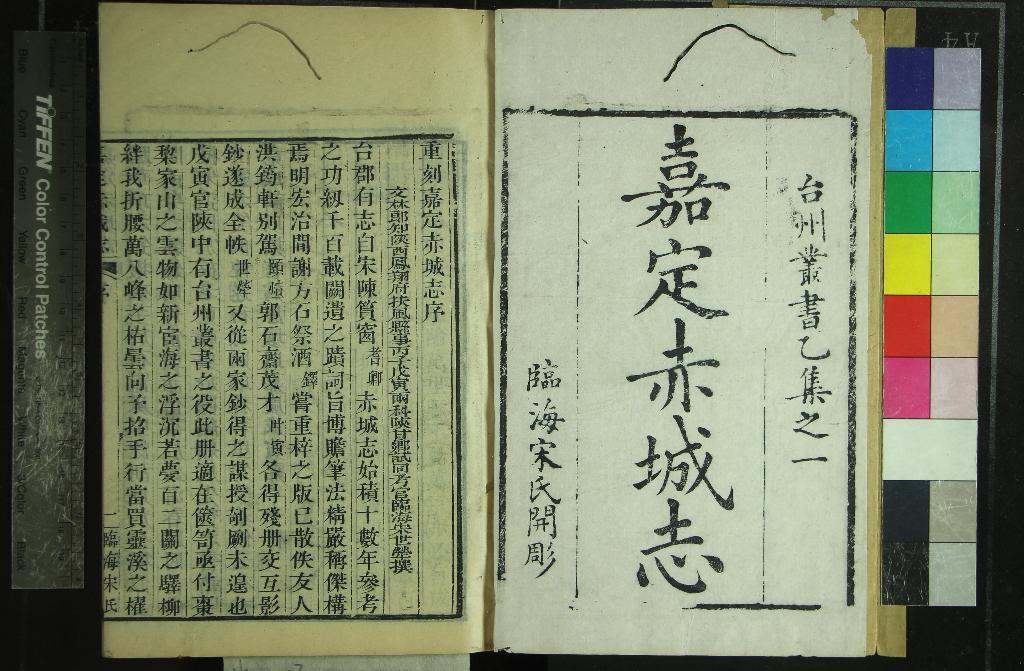 台州叢書乙集之一
嘉定赤城志
臨海宋氏開彫
重刻嘉定赤城志序
文林郎知陝西鳳翔府扶風縣事丙子戊寅兩科陝甘鄉試同考官臨海宋世犖撰
台郡有志自宋陳篔窗耆卿赤城志始積十數年參考
之功級千百載闕遺之蹟詞旨博贍筆法精嚴稱傑構
焉明宏治間謝方石祭酒鐸嘗重梓之版已散佚友人
洪筠軒別駕頤煊郭石齋茂才叶寅各得殘册交互影
鈔遂成全帙世犖又從兩家鈔得之謀授剞劂未遑也
戊寅官陝中有台州叢書之役此册適在篋笥亟付棗
棃家山之雲物如新宦海之浮沉若夢百二關之驛柳
絆我折腰萬八峰之枯曇向予招手行當買靈溪之櫂
臨海宋氏
TIFFEN Color Control Patches
Blue
Cyan
Green
Yellow
Red
Magenta
White
3/Color
Black